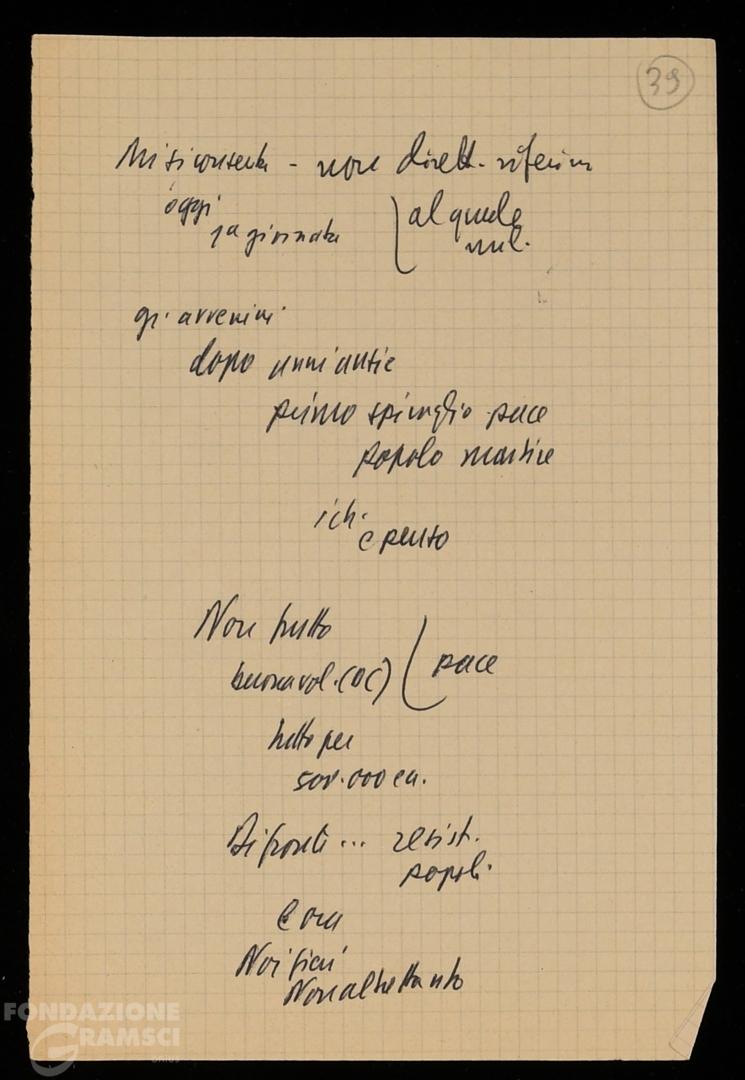 39
Mi si consenta - non dirett. riferim
oggi
1a giornata
al quale
mil.
gr. avvenim.
dopo anni
primo spiraglio pace
popolo martire
rich.
e punto
Non frutto
buonavol. (DC)
pace
tutto per
500.000 ca.
Di fronte ... resist.
popoli
E ora
Noi fieri
Non altrettanto
FONDAZIONE
GRAMSCI
ONLUS